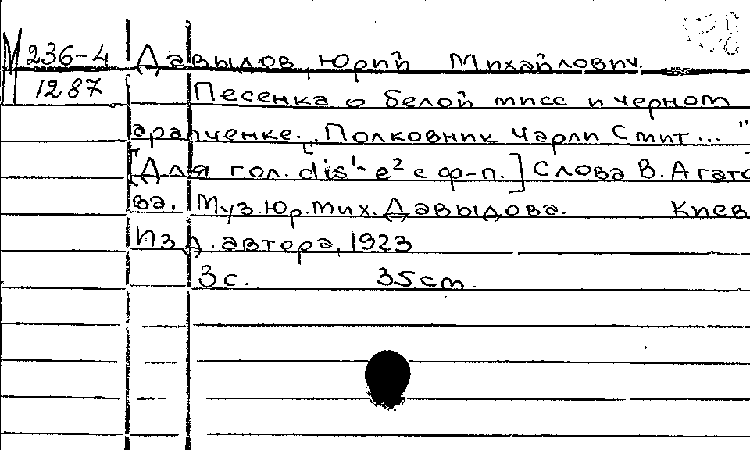 М 236-4 Давыдов, Юрий Михайлович
1287 Песенка о белой мисс и черном
арапченке. "Полковник Чарли Смит... "
[Для гол. dis¹- e² с ф-п.] Слова В. Агато
ва. Муз. Юр. Мих. Давыдова. Киев
Изд. автора, 1923
3 с. 35 cm.